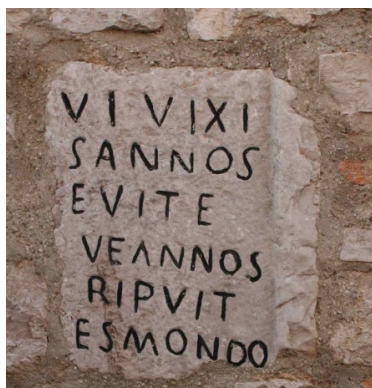 VI VIXI
SANNOS
EVITE
VEANNOS
RIPVIT
ESMONDO